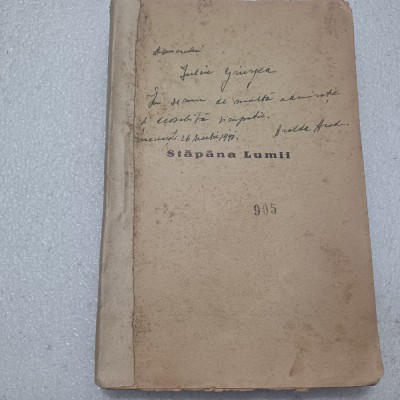 Iuliu Giurgea
În semn de multă admirație
și deosebită simpatie.
26 Martie, 1941.
Stăpâna Lumii
905